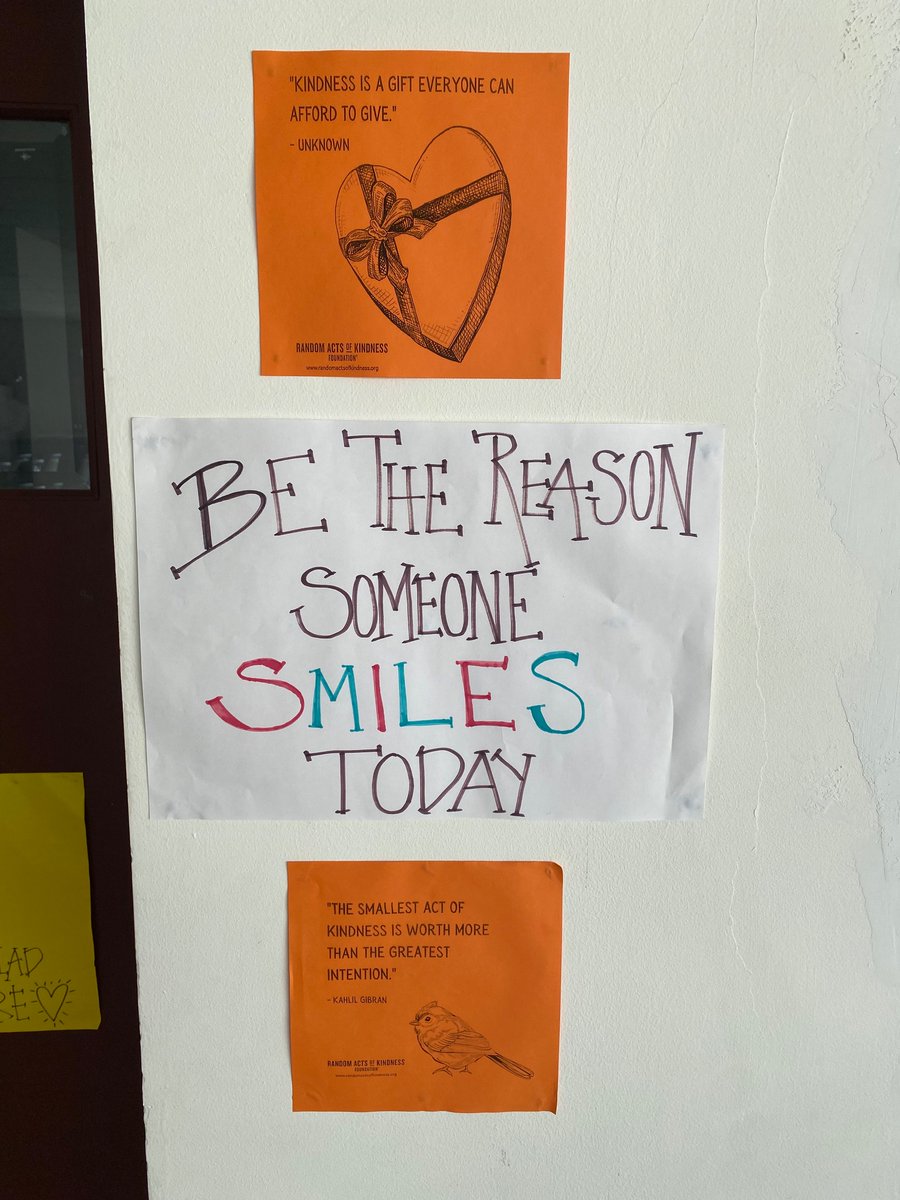 "KINDNESS IS A GIFT EVERYONE CAN
AFFORD TO GIVE."
- UNKNOWN
RANDOM ACTS OF KINDNESS
FOUNDATION®
www.randomactsofkindness.org
BE THE REASON
SOMEONE
SMILES
TODAY
"THE SMALLEST ACT OF
KINDNESS IS WORTH MORE
THAN THE GREATEST
INTENTION."
- KAHLIL GIBRAN
RANDOM ACTS OF KINDNESS
FOUNDATION®
www.randomactsofkindness.org